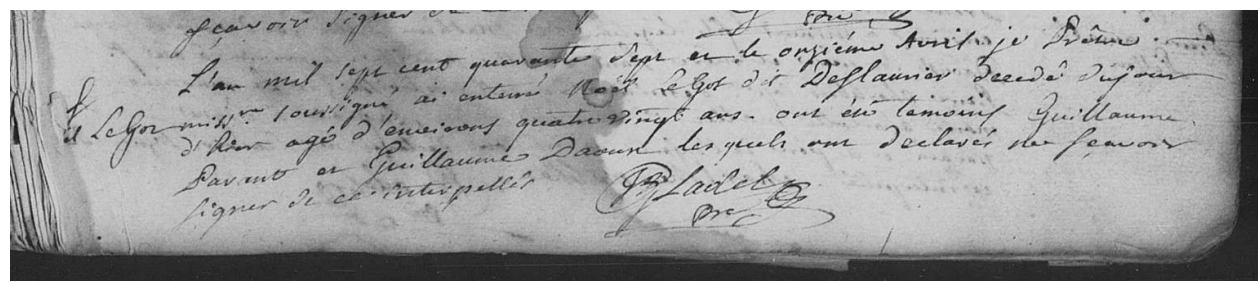 sçavoir signer de ce
Ptre
L'an mil sept cent quarante sept et le onziéme Avril je Prêtre
S
LeGos
miss.re soussigné ai enterré Noël LeGos dit Deslaurier decedé dujour
d'hier agé d'environs quatre vingt ans. ont été temoins Guillaume
Parant et Guillaume Daoust lesquels ont declarés ne sçavoir
signer de ce interpellés
Ladel
Ptre